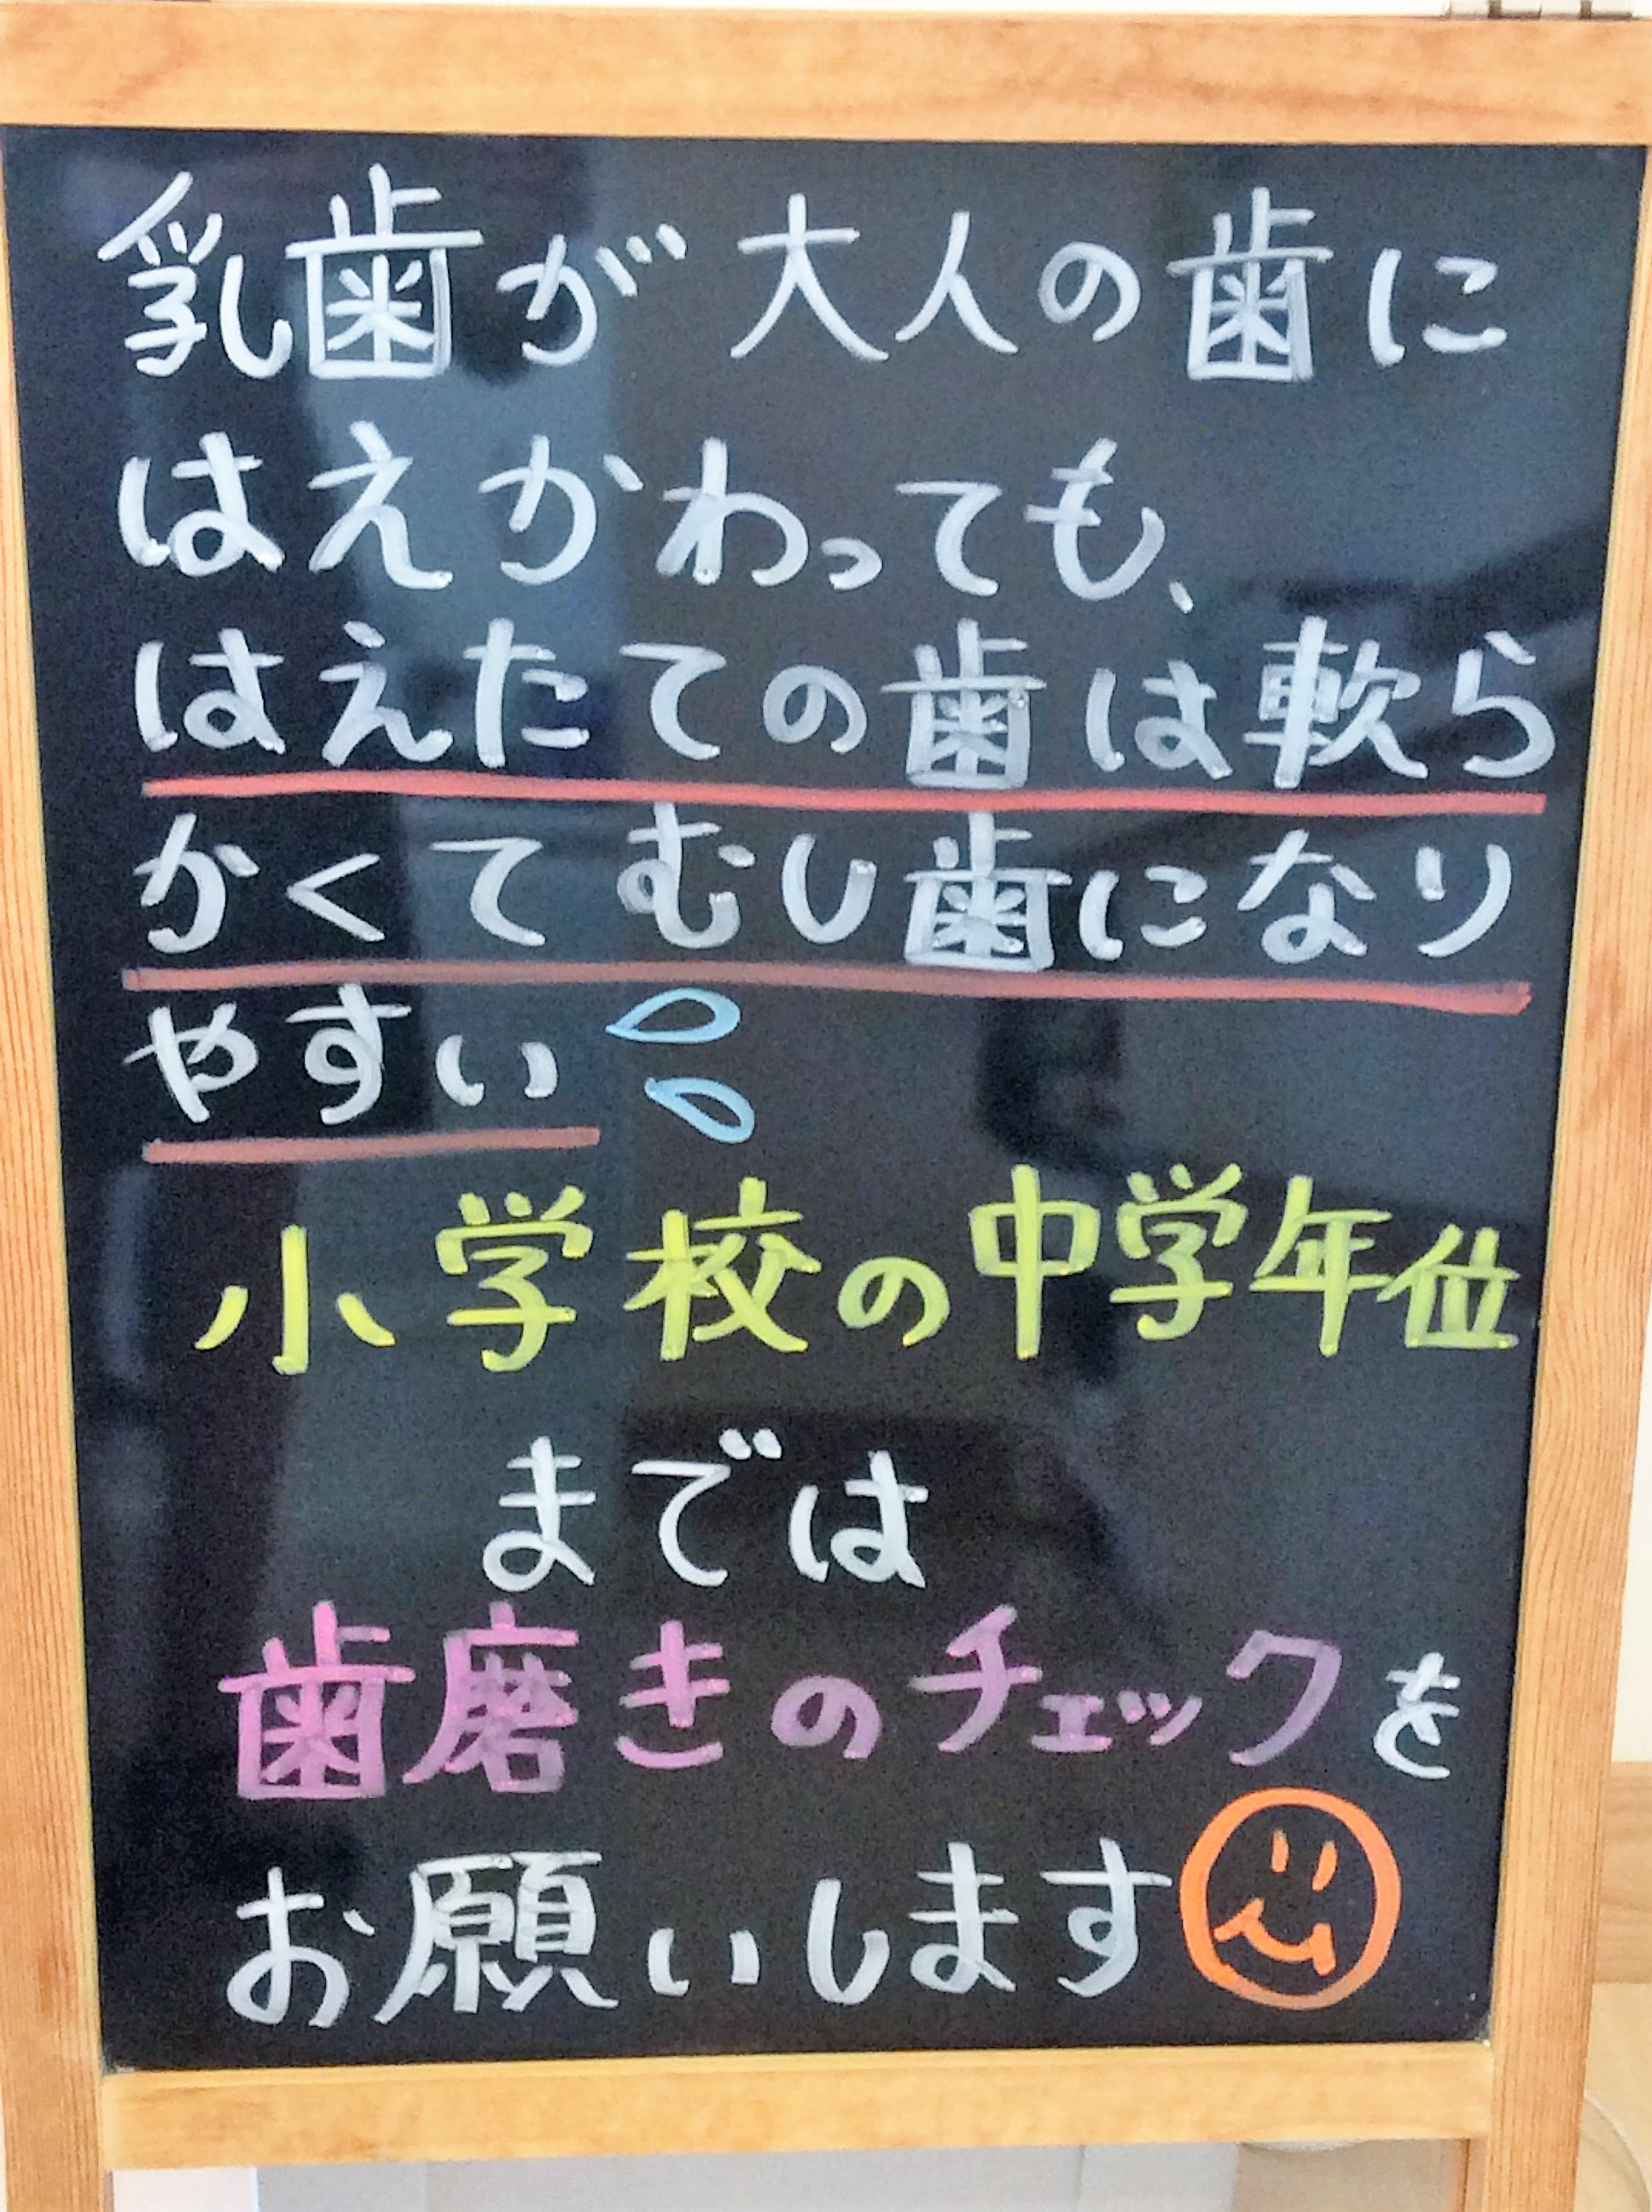 乳歯が大人の歯に
はえかわっても、
はえたての歯は軟ら
かくてむし歯になり
やすい
小学校の中学年位
までは
歯磨きのチェックを
お願いします